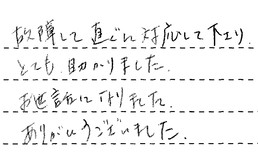 故障して直ぐに対応して下さり、
とても助かりました。
お世話になりました。
ありがとうございました。